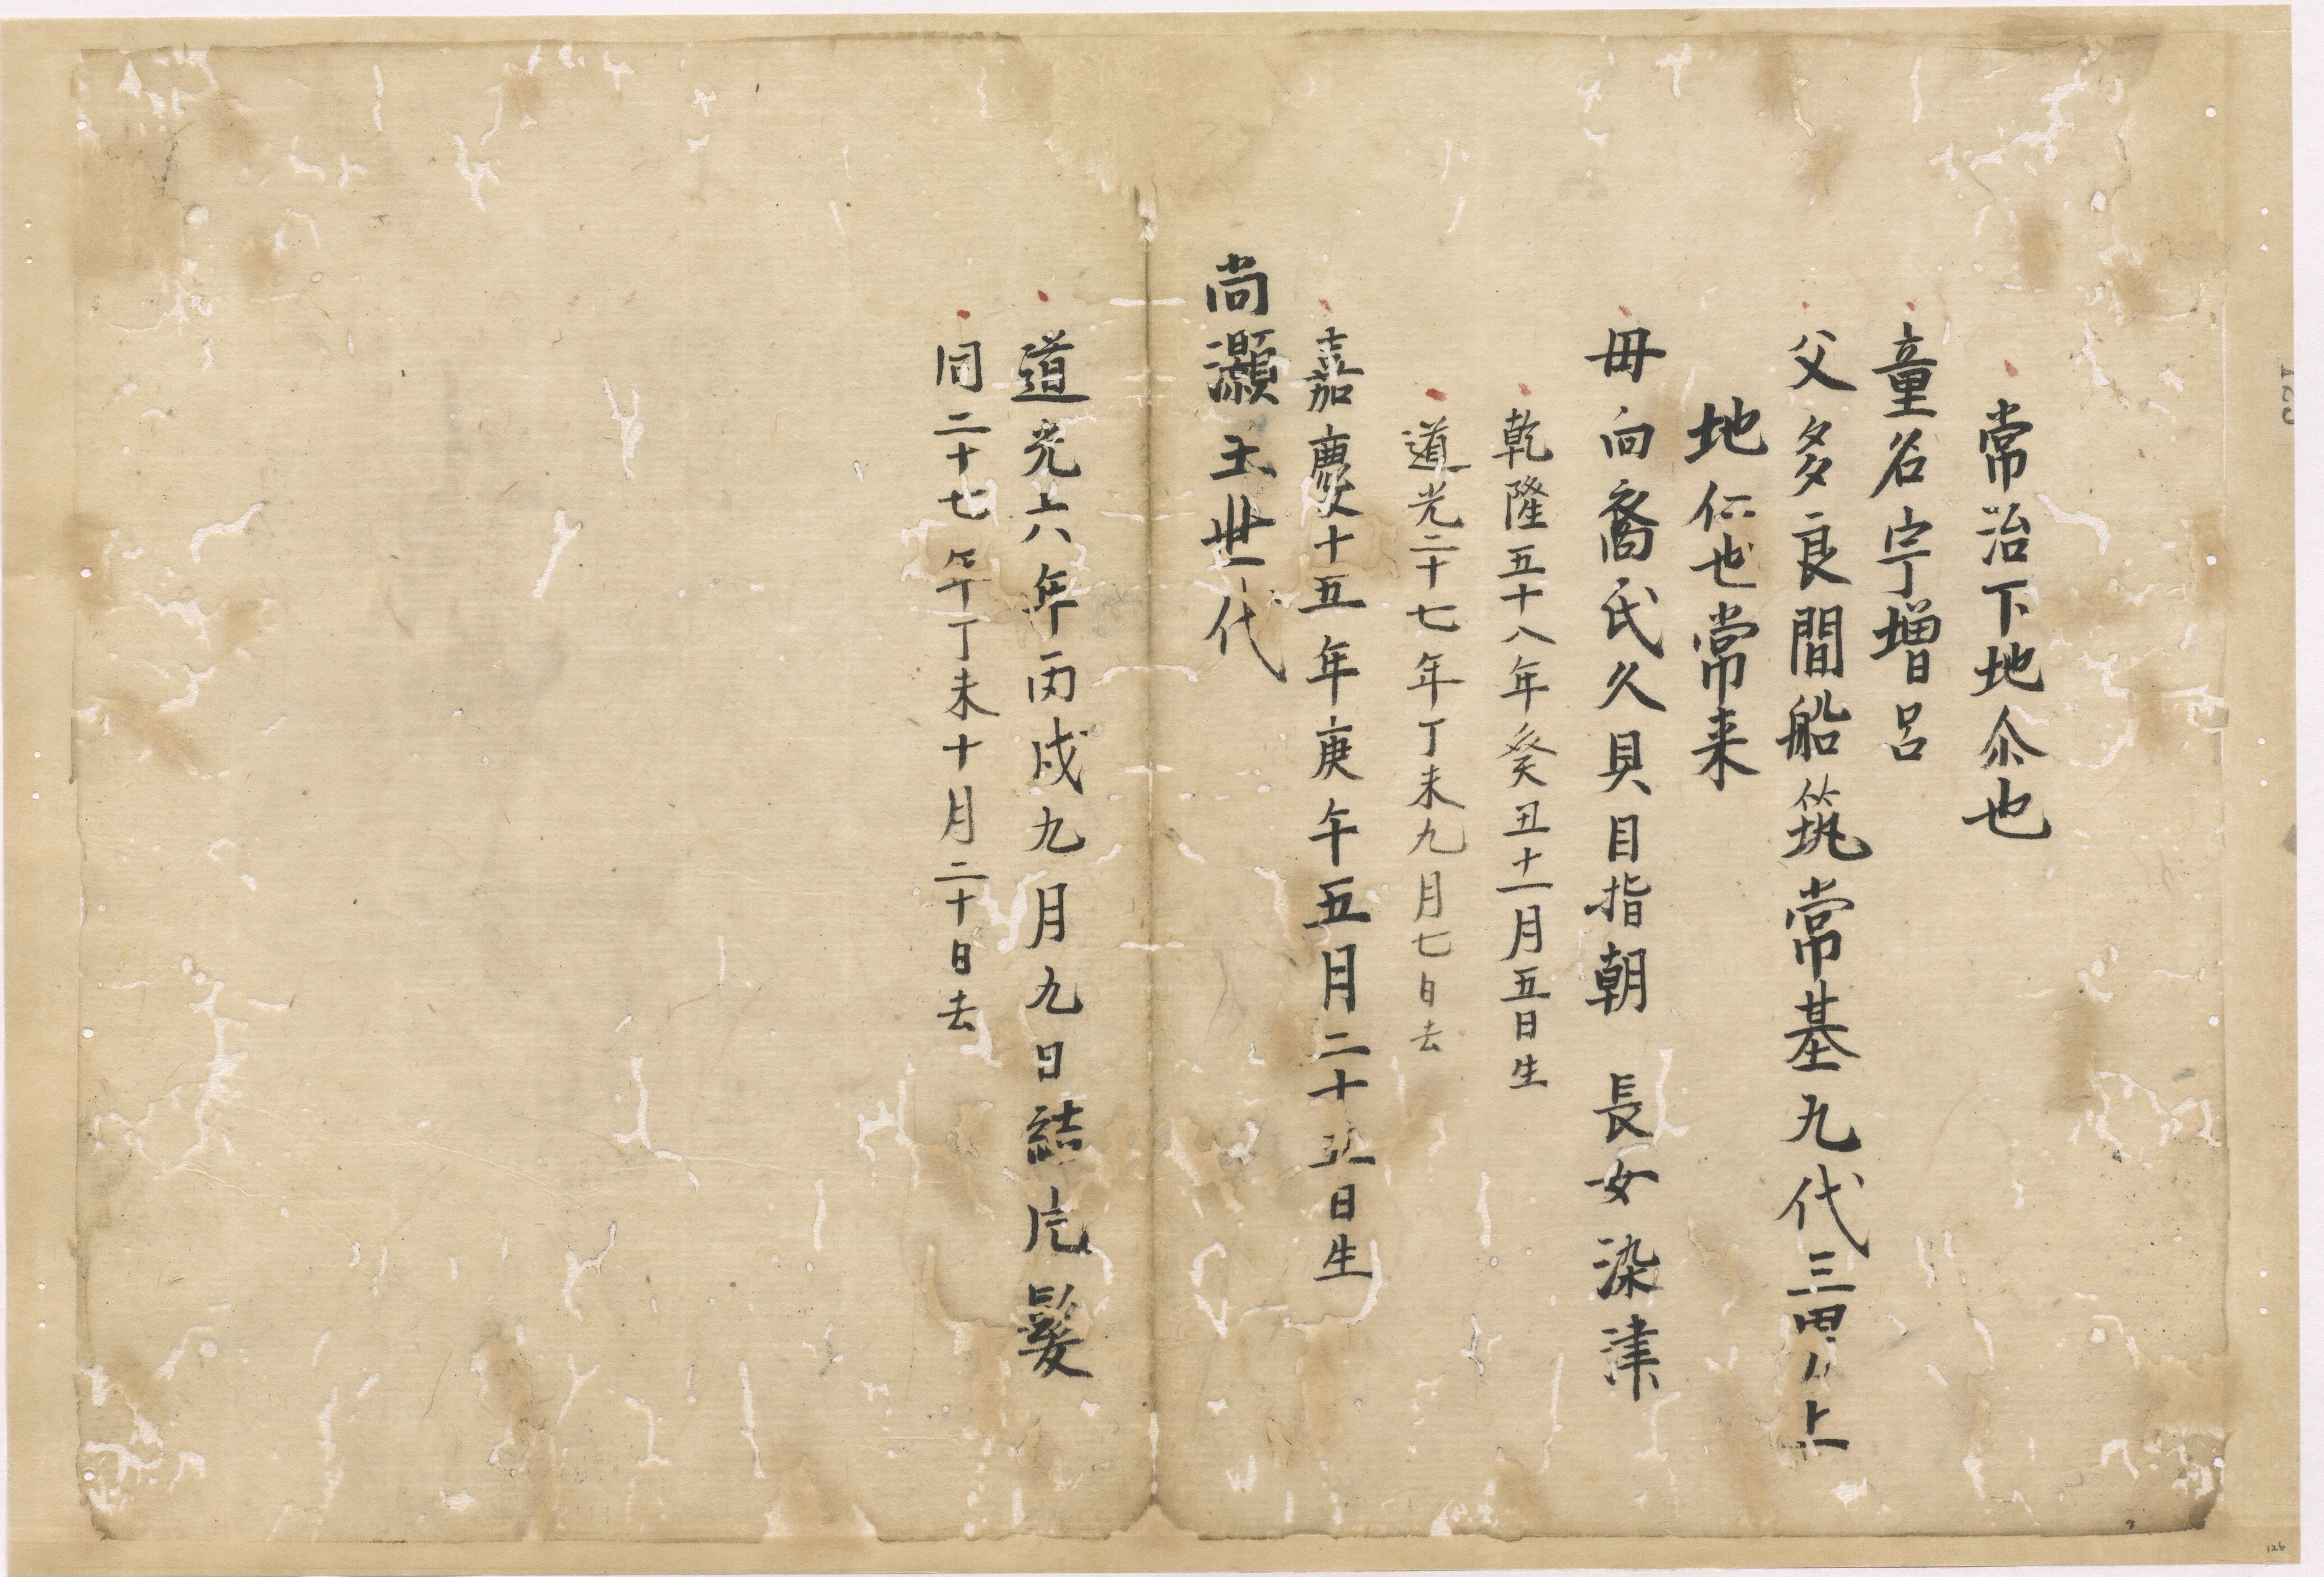 常治下地尒也
童名宇増呂
父多良間船筑常基九代三男川上
地仁也常来
母向裔氏久貝目指朝　長女染津
乾隆五十八年癸丑十一月五日生
道光二十七年丁未九月七日去
嘉慶十五年庚午五月二十五日生
尚灝王世代
道光六年丙戌九月九日結片髪
同二十七年丁未十月二十日去
126